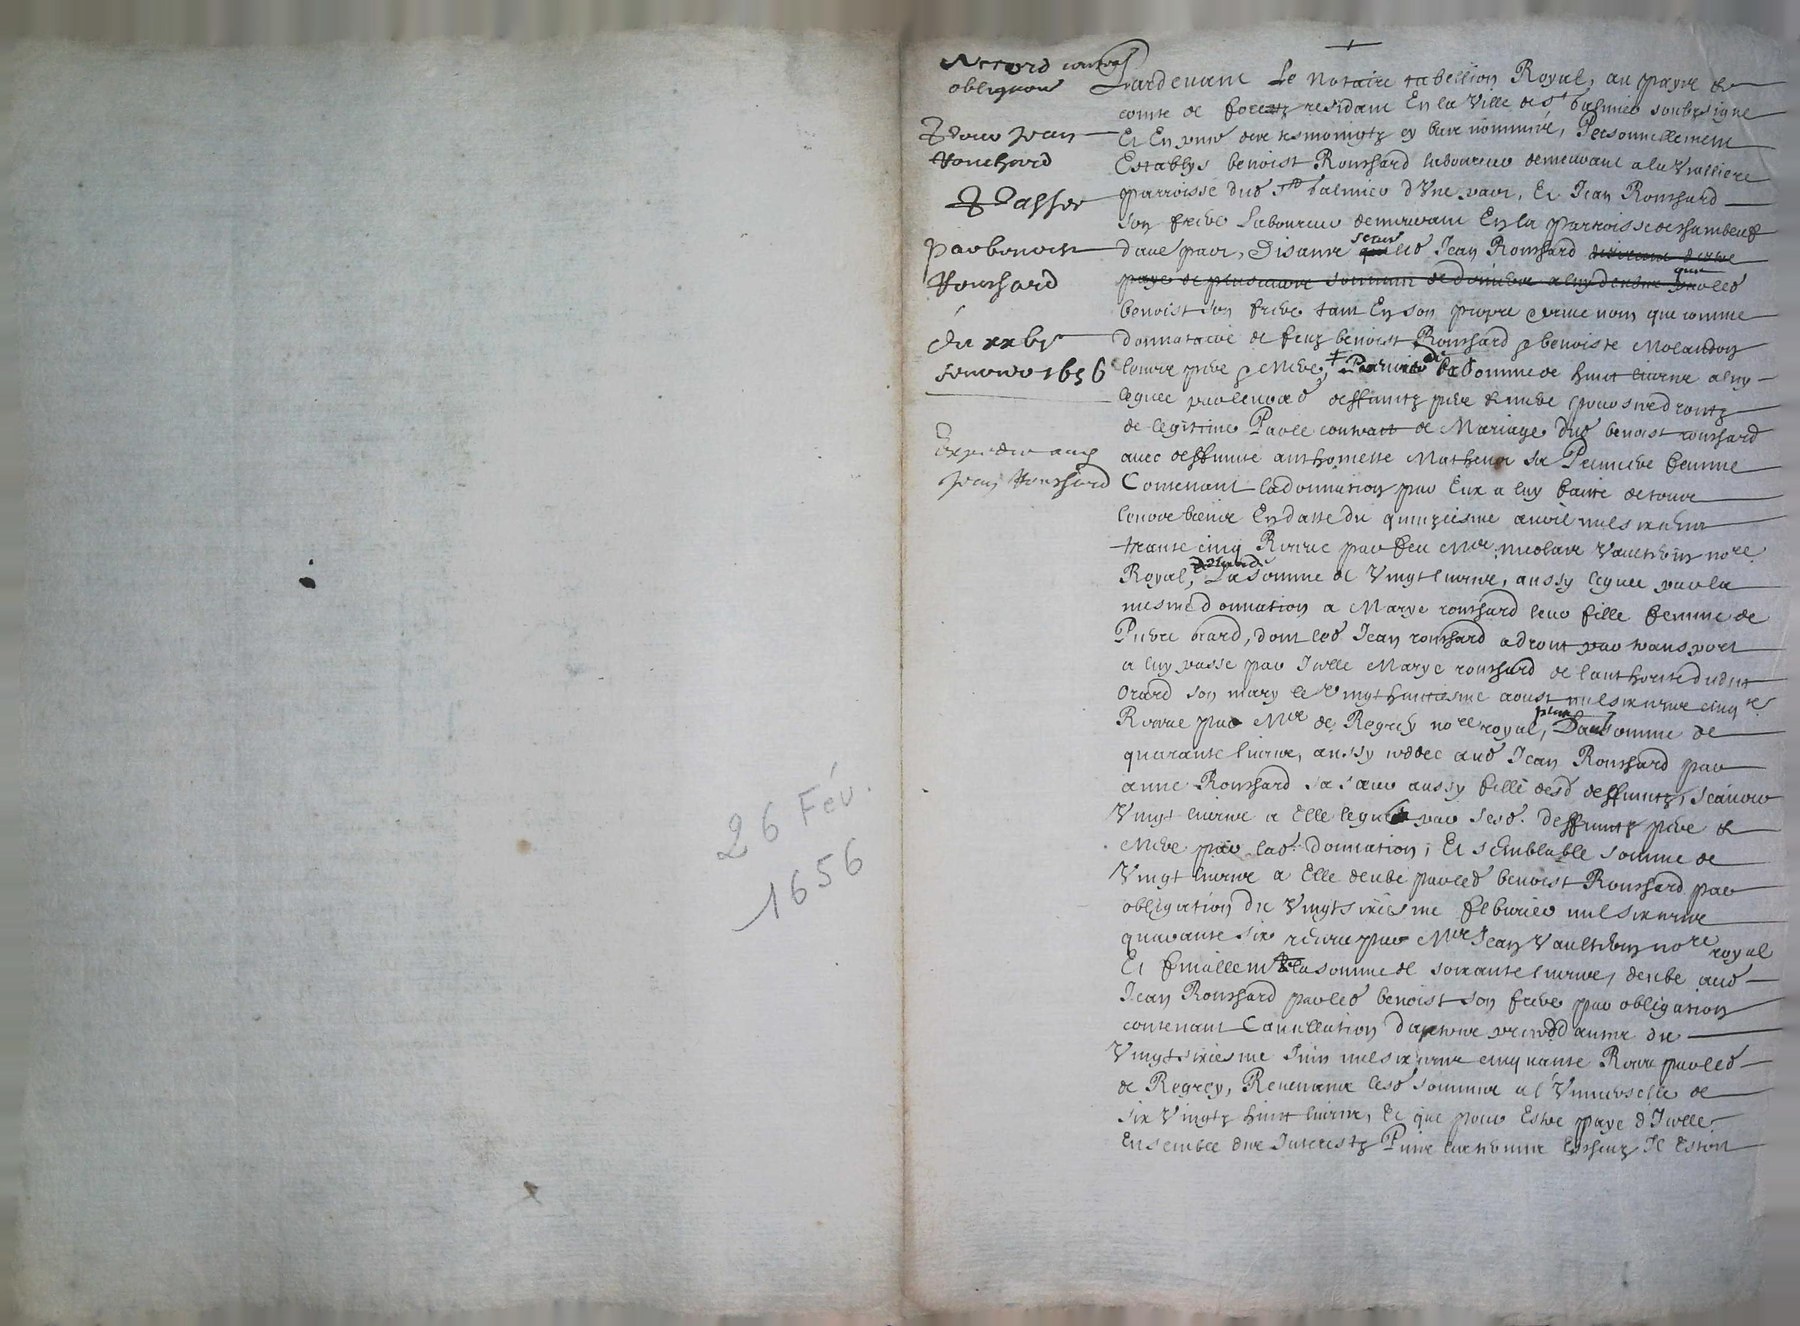 26 Fév.
1656
Accord contenant
obligaon
Pour Jean
Ronshard
Passée
par benoist
Ronshard
du xxvi
fevrier 1656
Expedie aud
Jean Ronshard
Pardevant Le Notaire tabellion Royal, au payis &
comte de forestz residant En la Ville de St balmier soubzsigne
Et En pnce des tesmoingtz cy bas nommés, Personnellement
Establys benoist Ronshard laboureur demeurant a la
parroisse dud St balmier d'Une part, Et Jean Ronshard
son frere Laboureur demeurant En la parroisse de Chambeuf
daultre part, Disant led Jean Ronshard
que led
benoist son frere tant En son propre et privé nom que comme
donnataire de feuz benoist Ronshard & benoiste Molandon
leurs pere & Mere, la somme de huit livres a luy
leguee par leursd deffuntz pere & mere pour ses droitz
de legitime Par le contract de Mariage dud benoist ronshard
avec deffunte anthoinette Mathevon sa Premiere femme
Contenant la donnation par Eux a luy faitte de tous
leurs biens En datte du quinziesme avril mil six cens
trante cinq Receue par feu Mre nicolas Vaulthon nore
Royal, La somme de Vingt livres, aussy leguee par la
mesme donnation a Marye ronshard leur fille femme de
Pierre orard, dont led Jean ronshard a droit par transport
a luy passé par Icelle Marye ronshard de l'authorité dudit
Orard son mary le Vingt huictiesme aoust mil six cens cinqte
Receue par Mre de Regrey nore royal, plus la somme de
quarante livres, aussy ceddee aud Jean Ronshard par
anne Ronshard sa sœur aussy fille desd deffuntz, scavoir
Vingt livres a Elle leguées par sesd. deffuntz pere &
Mere par lad. Donnation, Et semblable somme de
Vingt livres a Elle deube par led benoist Ronshard par
obligation du Vingtsixiesme febvrier mil six cens
quarante six receue par Mre Jean Vaulthon nore royal
Et finallemt la somme de soixante livres, deube aud
Jean Ronshard par led benoist son frere par obligation
contenant Cancellation d'autres precedantes du
Vingtsixiesme Juin mil six cens cinquante Receue par led
de Regrey, Revenant lesd sommes a l'Universelle de
six Vingtz huit livres, Et que pour Estre payé d'Icelles
Ensemble des Interestz Il Estoit